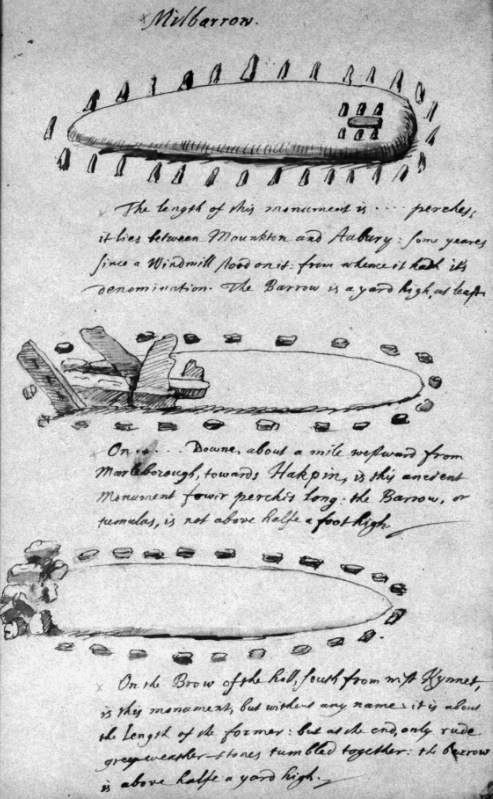 Milbarrow.
The length of this monument is .... perches;
it lies between Mounkton and Aubury: some yeares
since a Windmill stood on it: from whence it hath it's
denomination. The Barrow is a yard high, at least
On .... Downe, about a mile westward from
Marleborough, towards Hakpin, is this ancient
Monument fower perches long. the Barrow, or
tumulus, is not above halfe a foot high.
On the Brow of the hill, South from west Kynnet,
is this monument, but without any name: it is about
the length of the former: but at the end, only rude
greyweather-stones tumbled together: the barrow
is above halfe a yard high.